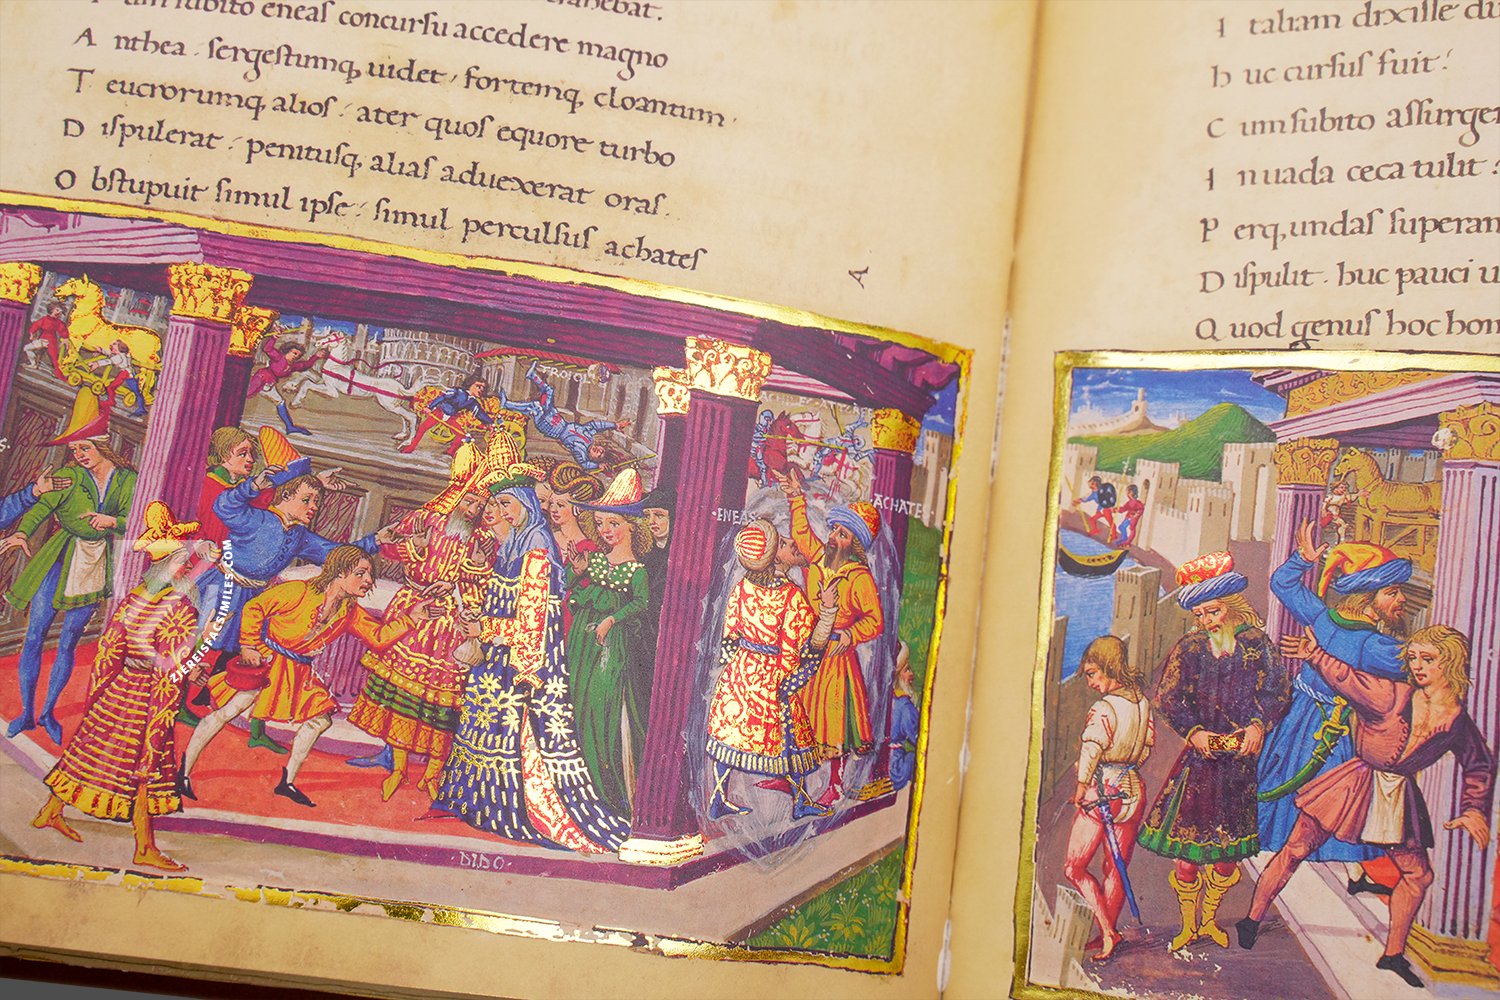 um subito eneas concursu accedere magno
A nthea · sergestumq, uidet · fortemq, cloantum ·
T eucrorumq, alios : ater quos equore turbo
D ispulerat : penitusq, alias aduexerat oras .
O bstupuit simul ipse : simul perculsus achates
A
TROIOL
ENEAS
ACHATE
DIDO
I taliam dixisse du
h uc cursus fuit :
C um subito assurge
I nuada ceca tulit :
P erq, undas superan
D ispulit · huc pauci u
Q uod genus hoc hom
ZIEREISFACSIMILES.COM